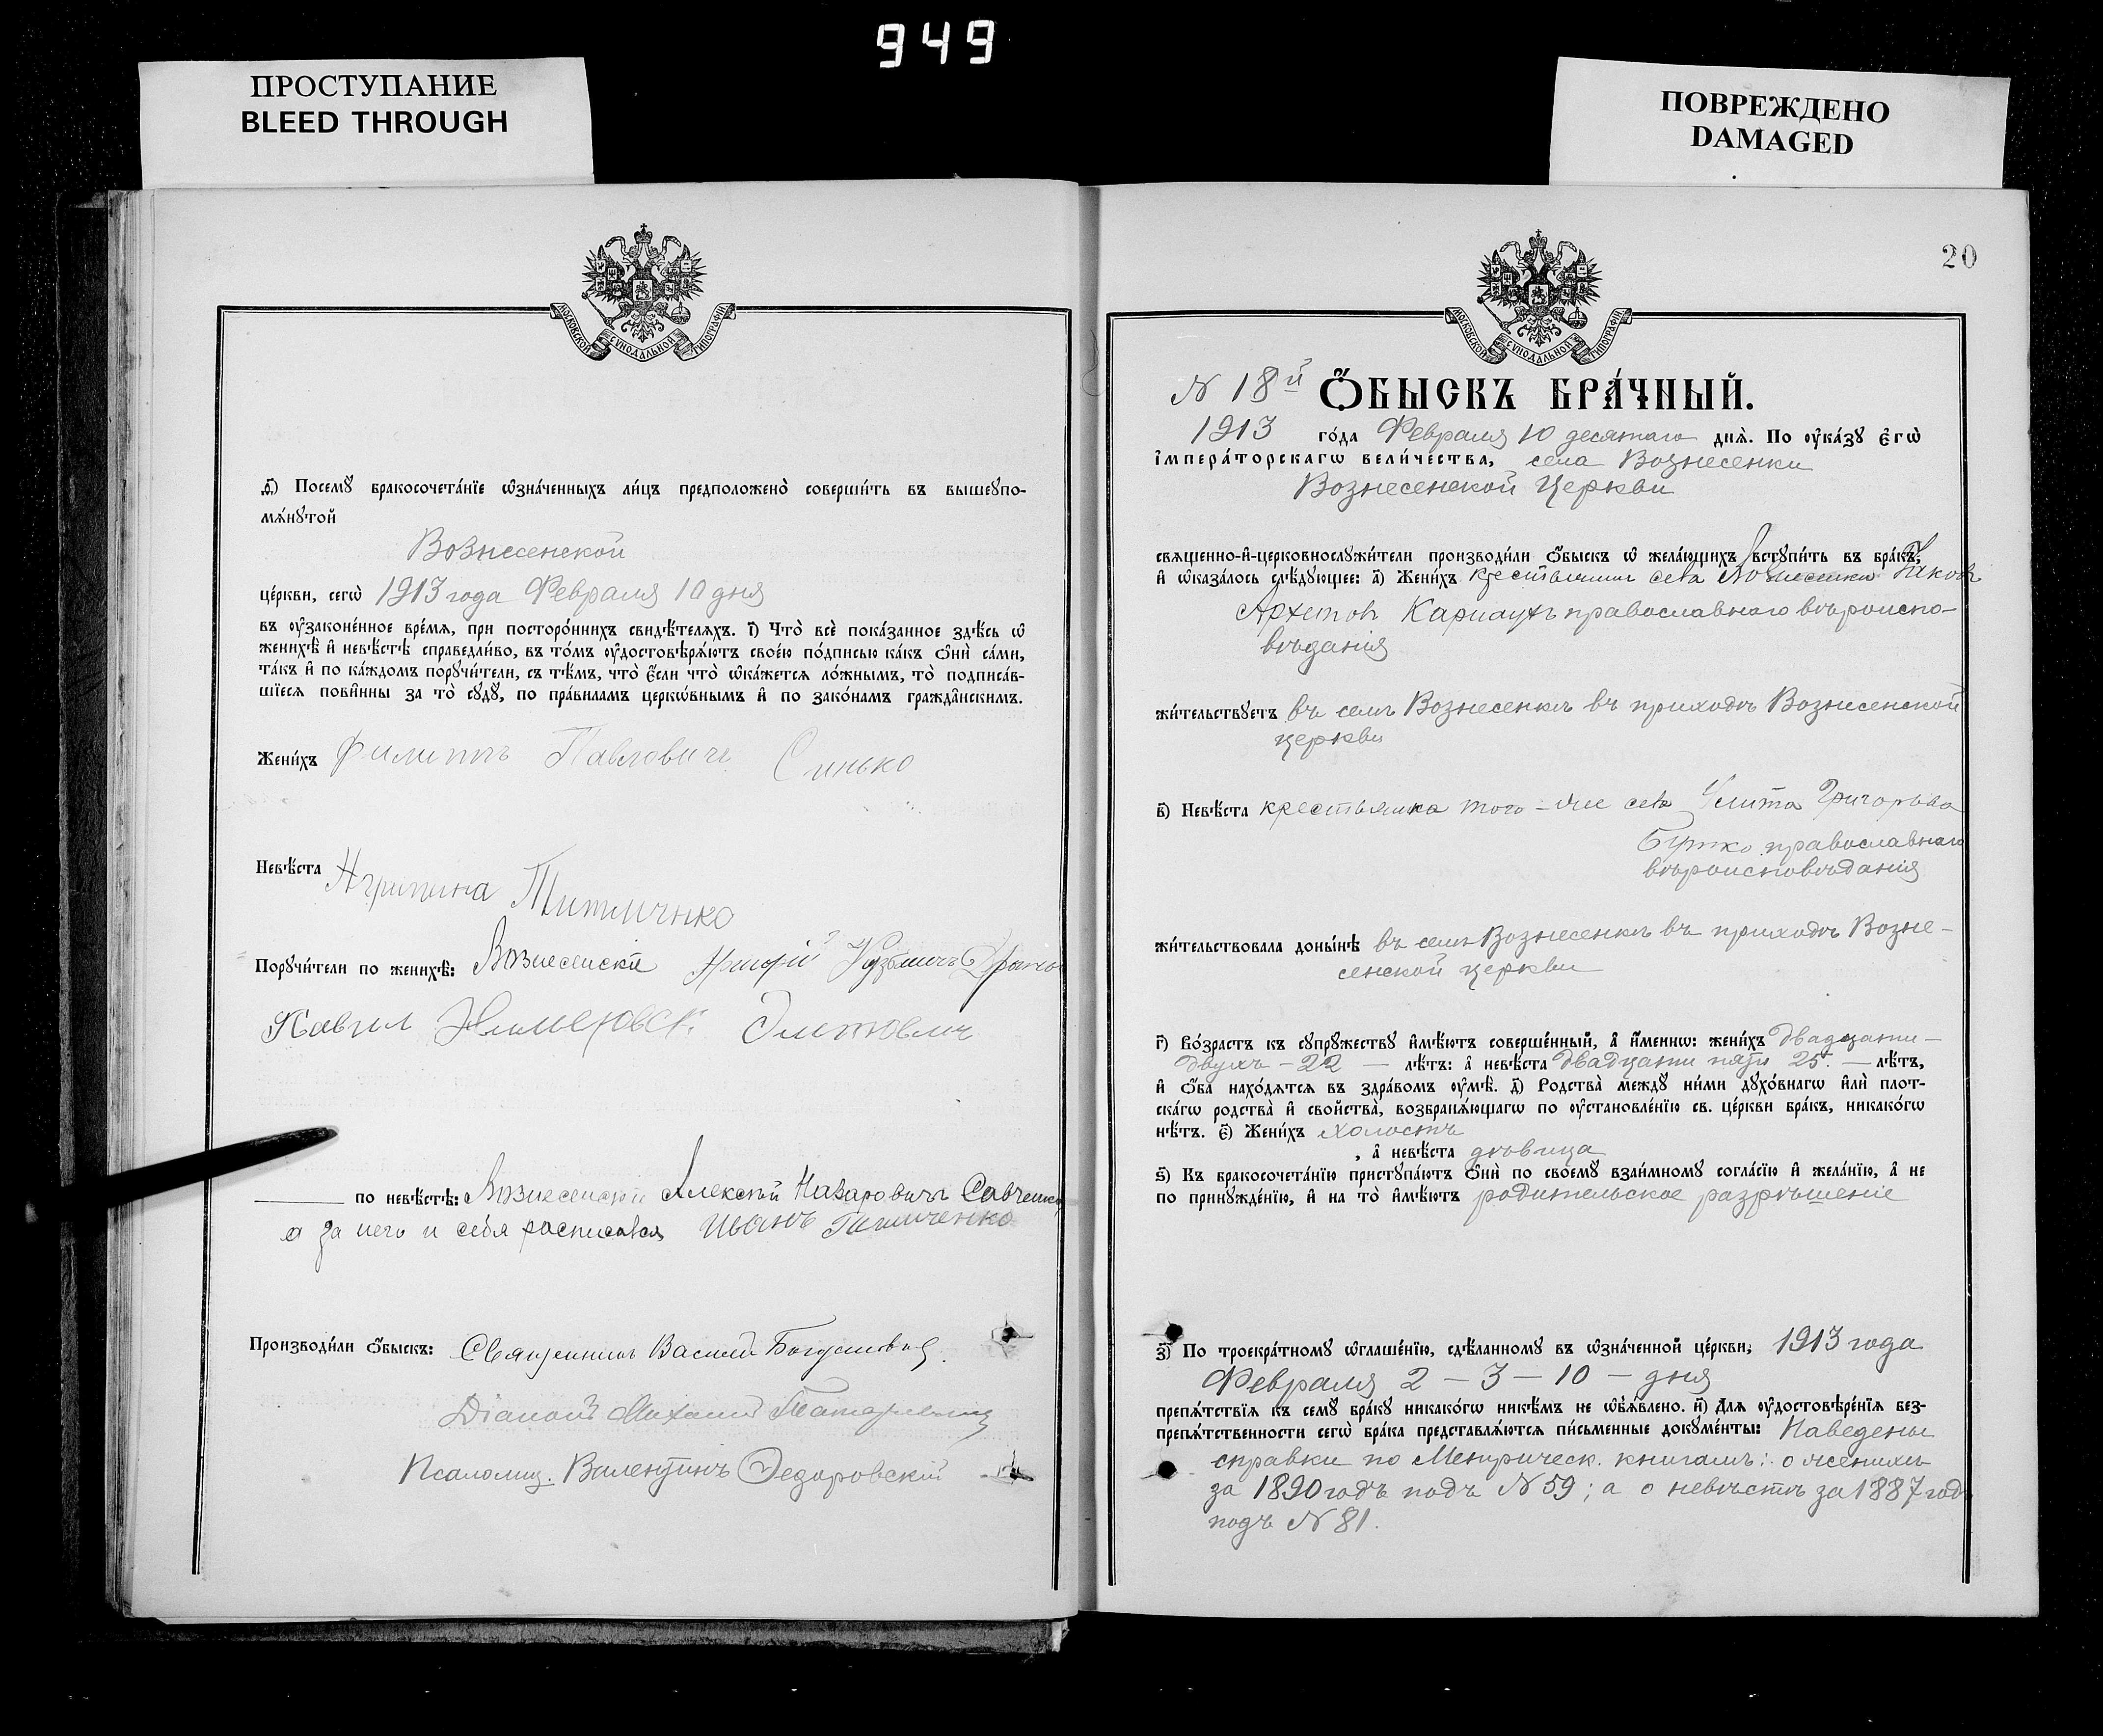 949
ПРОСТУПАНИЕ
BLEED THROUGH
ПОВРЕЖДЕНО
DAMAGED
МОСКОВСКОЙ СѴНОДАЛЬНОЙ ТИПОГРАФІИ
ѳ҃) Посемꙋ̀ бракосочета́нїе ѡ҆зна́ченныхъ ли́цъ предположено̀ соверши́ть въ вышеꙋпо-
мѧ́нꙋтой
Вознесенской
це́ркви, сегѡ̀ 1913 года Февраля 10 дня
въ ᲂу҆законе́нное вре́мѧ, при посторо́ннихъ свидѣ́телѧхъ. і҃) Что̀ всѐ пока́занное здѣ́сь ѡ҆
женихѣ̀ и҆ невѣ́стѣ справедли́во, въ то́мъ ᲂу҆достовѣрѧ́ютъ свое́ю по́дписью ка́къ ѻ҆нѝ са́ми,
та́къ и҆ по ка́ждомъ порꙋчи́тели, съ тѣ́мъ, что̀ є҆́сли что̀ ѡ҆ка́жетсѧ ло́жнымъ, то̀ подписа́в-
шїесѧ пови́нны за то̀ сꙋдꙋ̀, по пра́виламъ церкѡ́внымъ и҆ по зако́намъ гражда́нскимъ.
Жени́хъ Филиппъ Павловичъ Синько
Невѣ́ста Агрипина
Порꙋчи́тели по женихѣ̀: Вознесенскіе
Павил
по невѣ́стѣ: Алексѣй Назаровичъ Савченко
а за него и себя росписался Иванъ
Производи́ли ѻ҆́быскъ: Священникъ Василій
Діаконъ Михаилъ
Псаломщ. Валентинъ Федоровскій
20
МОСКОВСКОЙ СѴНОДАЛЬНОЙ ТИПОГРАФІИ
N 18й Ѻ҆́БЫСКЪ БРА́ЧНЫЙ.
1913 го́да Февраля 10 десятаго днѧ̀. По ᲂу҆ка́зꙋ є҆гѡ̀
і҆мпера́торскагѡ вели́чества, села Вознесенки
Вознесенской Церкви
свѧщенно-и҆-церковнослꙋжи́тели производи́ли ѻ҆́быскъ ѡ҆ жела́ющихъ встꙋпи́ть въ бра́къ:
и҆ ѡ҆каза́лось слѣ́дꙋющее: а҃) Жени́хъ крестьянин села Вознесенки Яковъ
православнаго вѣроиспо-
вѣданія
жи́тельствꙋетъ въ селѣ Вознесенкѣ въ приходѣ Вознесенской
церкви
в҃) Невѣ́ста крестьянка того-же села Улита Григорьева
православнаго
вѣроисповѣданія
жи́тельствовала донын́ѣ въ селѣ Вознесенкѣ въ приходѣ Возне-
сенской церкви
г҃) Во́зрастъ къ сꙋпрꙋ́жествꙋ и҆мѣ́ютъ соверше́нный, а҆ и҆́меннѡ: жени́хъ двадцати-
двухъ - 22 - лѣ́тъ: а҆ невѣ́ста двадцати пяти 25. - лѣ́тъ,
и҆ ѻ҆́ба нахо́дѧтсѧ въ здра́вомъ ᲂу҆мѣ̀. д҃) Родства̀ междꙋ̀ ни́ми дꙋхо́внагѡ и҆лѝ плот-
ска́гѡ родства̀ и҆ свойства̀, возбранѧ́ющагѡ по ᲂу҆становле́нїю св. це́ркви бра́къ, никако́гѡ
нѣ́тъ. є҃) Жени́хъ холостъ
, а҆ невѣ́ста дѣвица
ѕ҃) Къ бракосочета́нїю пристꙋпа́ютъ ѻ҆нѝ по своемꙋ̀ взаи́мномꙋ согла́сїю и҆ жела́нїю, а҆ не
по принꙋжде́нїю, и҆ на то̀ и҆мѣ́ютъ родительское разрѣшеніе
з҃) По троекра́тномꙋ ѡ҆глаше́нїю, сдѣ́ланномꙋ въ ѡ҆зна́ченной це́ркви, 1913 года
Февраля 2 - 3 - 10 - дня
препѧ́тствїѧ къ семꙋ̀ бра́кꙋ никако́гѡ никѣ́мъ не ѡ҆б̾ѧ́влено. и҃) Длѧ ᲂу҆достовѣре́нїѧ без-
препѧ́тственности сегѡ̀ бра́ка представлѧ́ютсѧ пи́сьменные докꙋме́нты: Наведены
справки по Метрическ. книгамъ: о женихѣ
за 1890 годъ подъ N 59; а о невѣстѣ за 1887 годъ
подъ N 81.